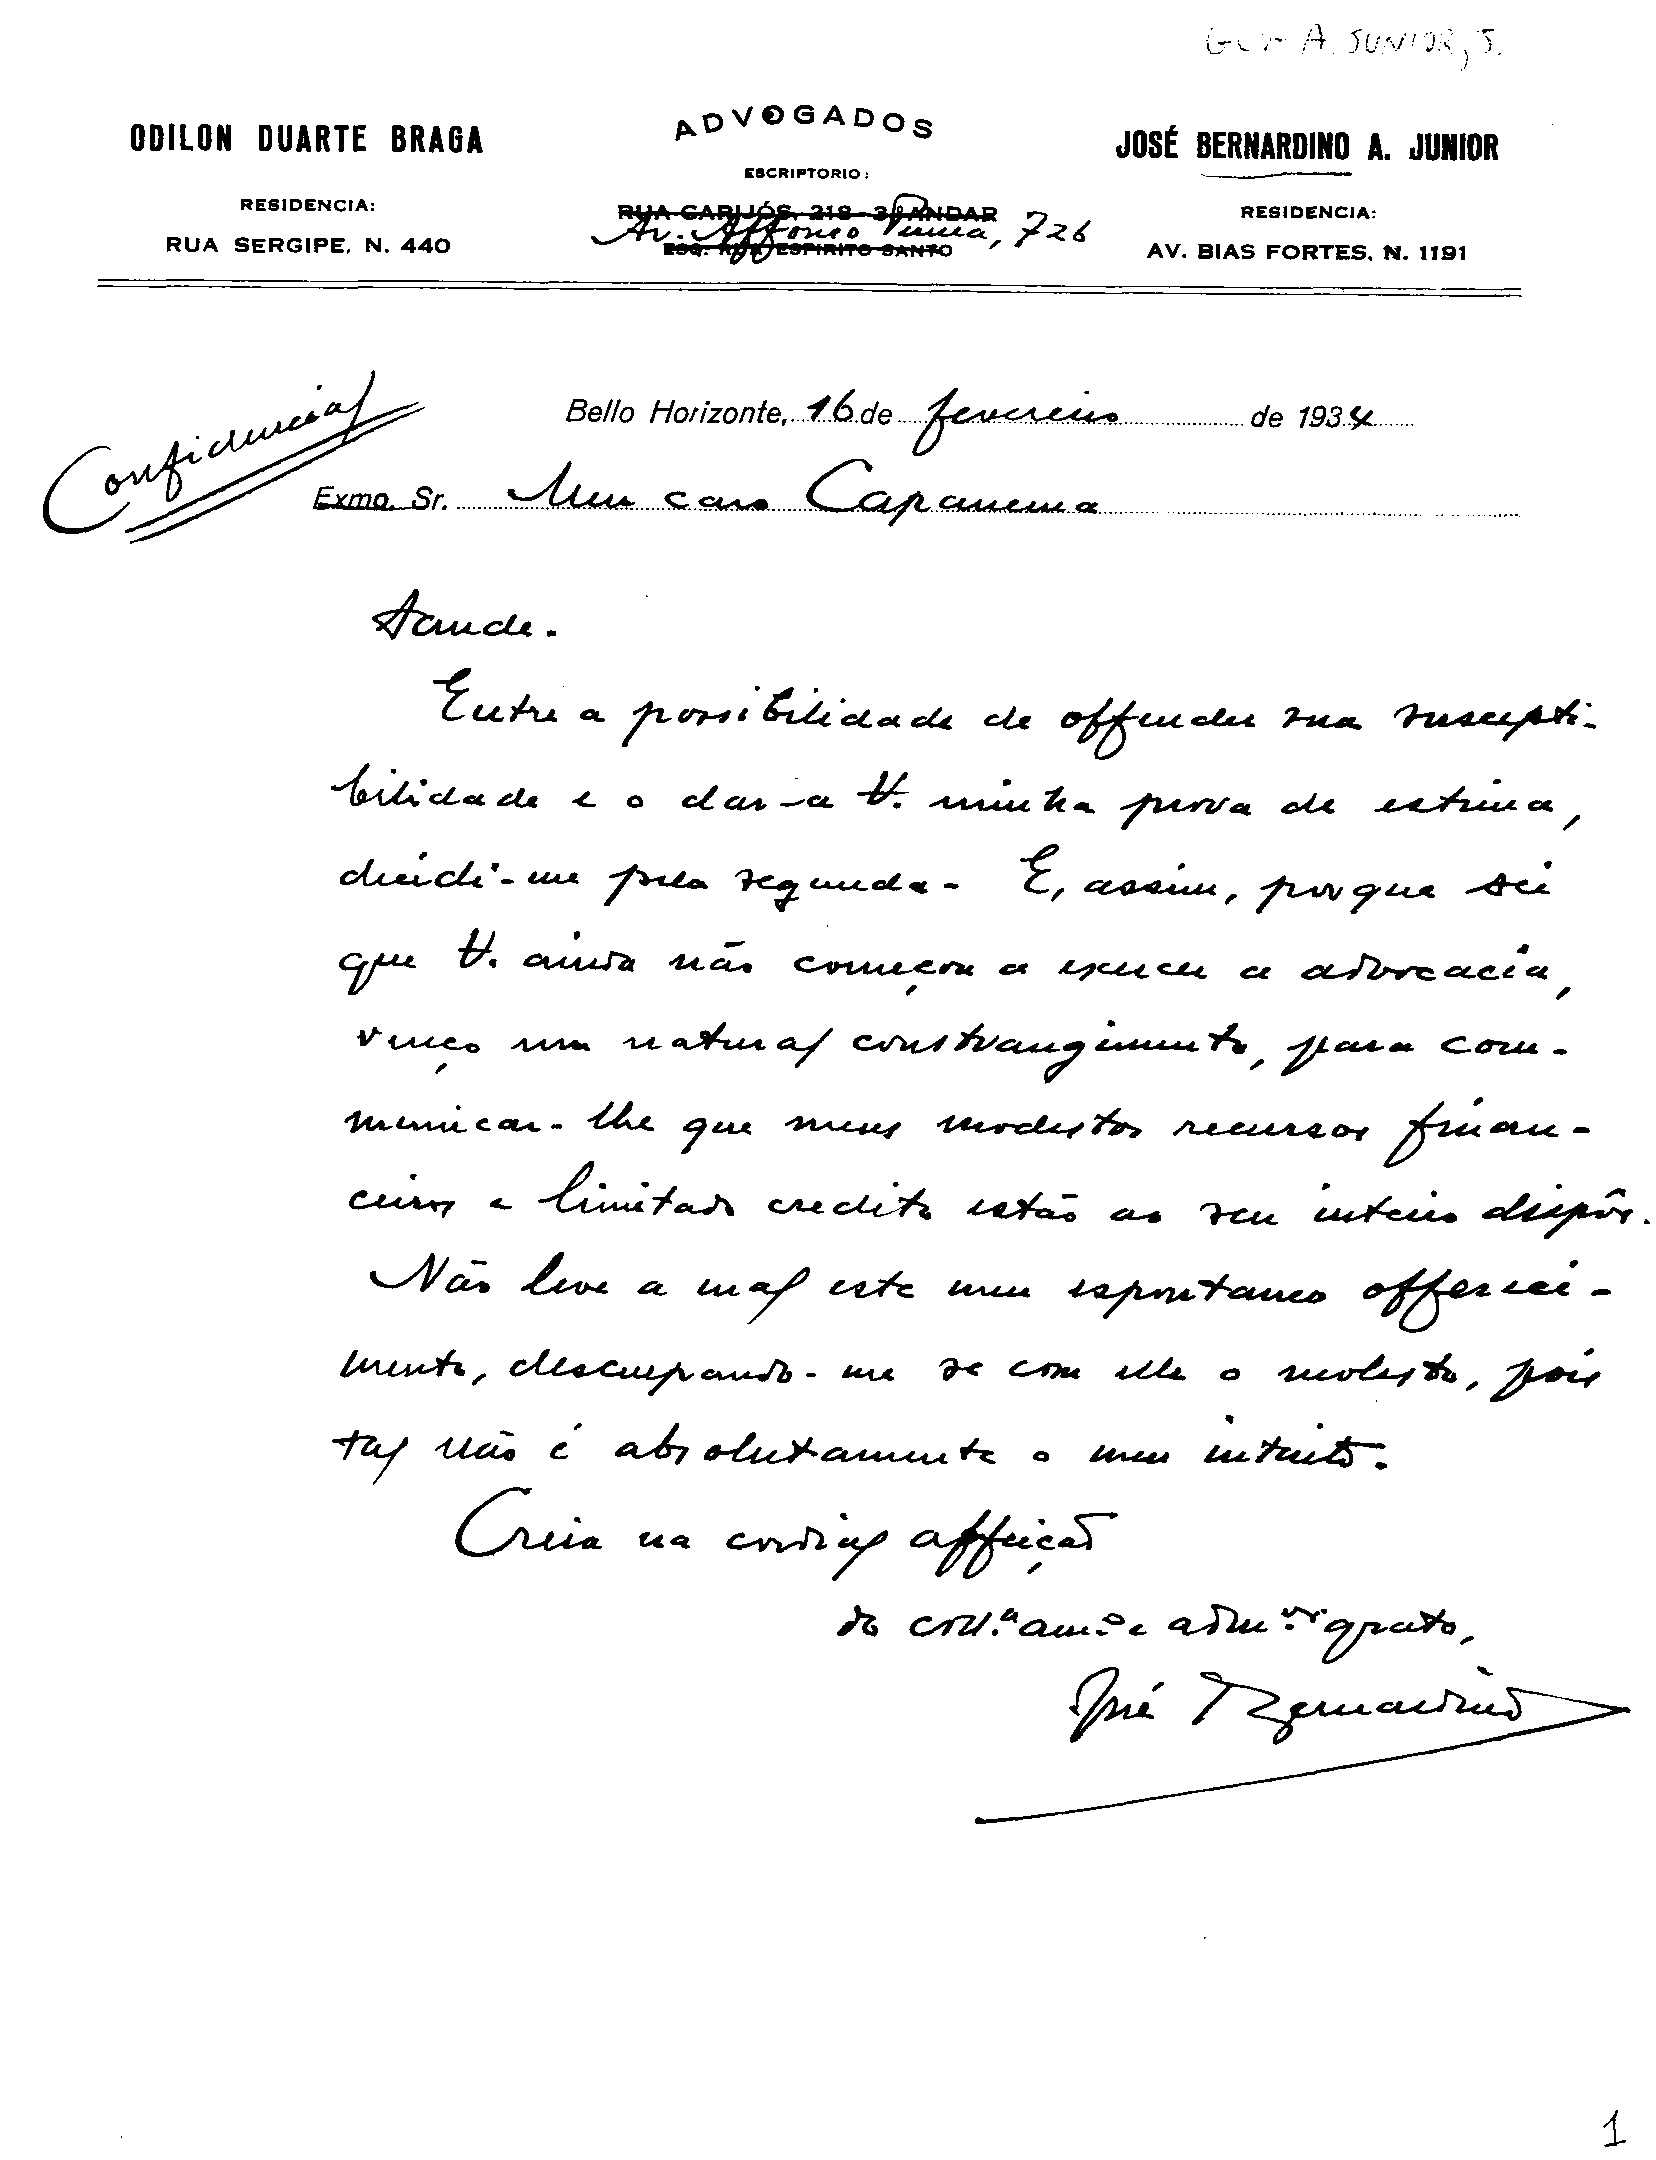 A. JUNIOR, J.
ADVOGADOS
ODILON DUARTE BRAGA
JOSÉ BERNARDINO A. JUNIOR
ESCRIPTORIO:
RESIDENCIA:
RUA SERGIPE, N. 440
RUA CARIJÓS, 218 - 3º ANDAR
Av. Affonso Penna, 726
ESQ. RUA ESPIRITO SANTO
RESIDENCIA:
AV. BIAS FORTES, N. 1191
Confidencial
Bello Horizonte, 16 de fevereiro de 1934
Exmo. Sr. Meu caro Capanema
Saude.
Entre a possibilidade de offender sua suscepti-
bilidade e o dar-a V. minha prova de estima,
decidi-me pela segunda. E, assim, porque sei
que V. ainda não começou a exercer a advocacia,
venço um natural constrangimento, para com-
municar-lhe que meus modestos recursos finan-
ceiros e limitado credito estão ao seu inteiro dispôr.
Não leve a mal este meu espontaneo offereci-
mento, desculpando-me se com elle o molesto, pois
tal não é absolutamente o meu intuito.
Creia na cordial affeição
do coll.ª am.º e adm.ºr grato,
José Bernardino
1